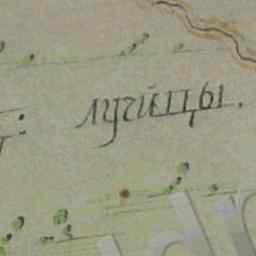 лучицы.